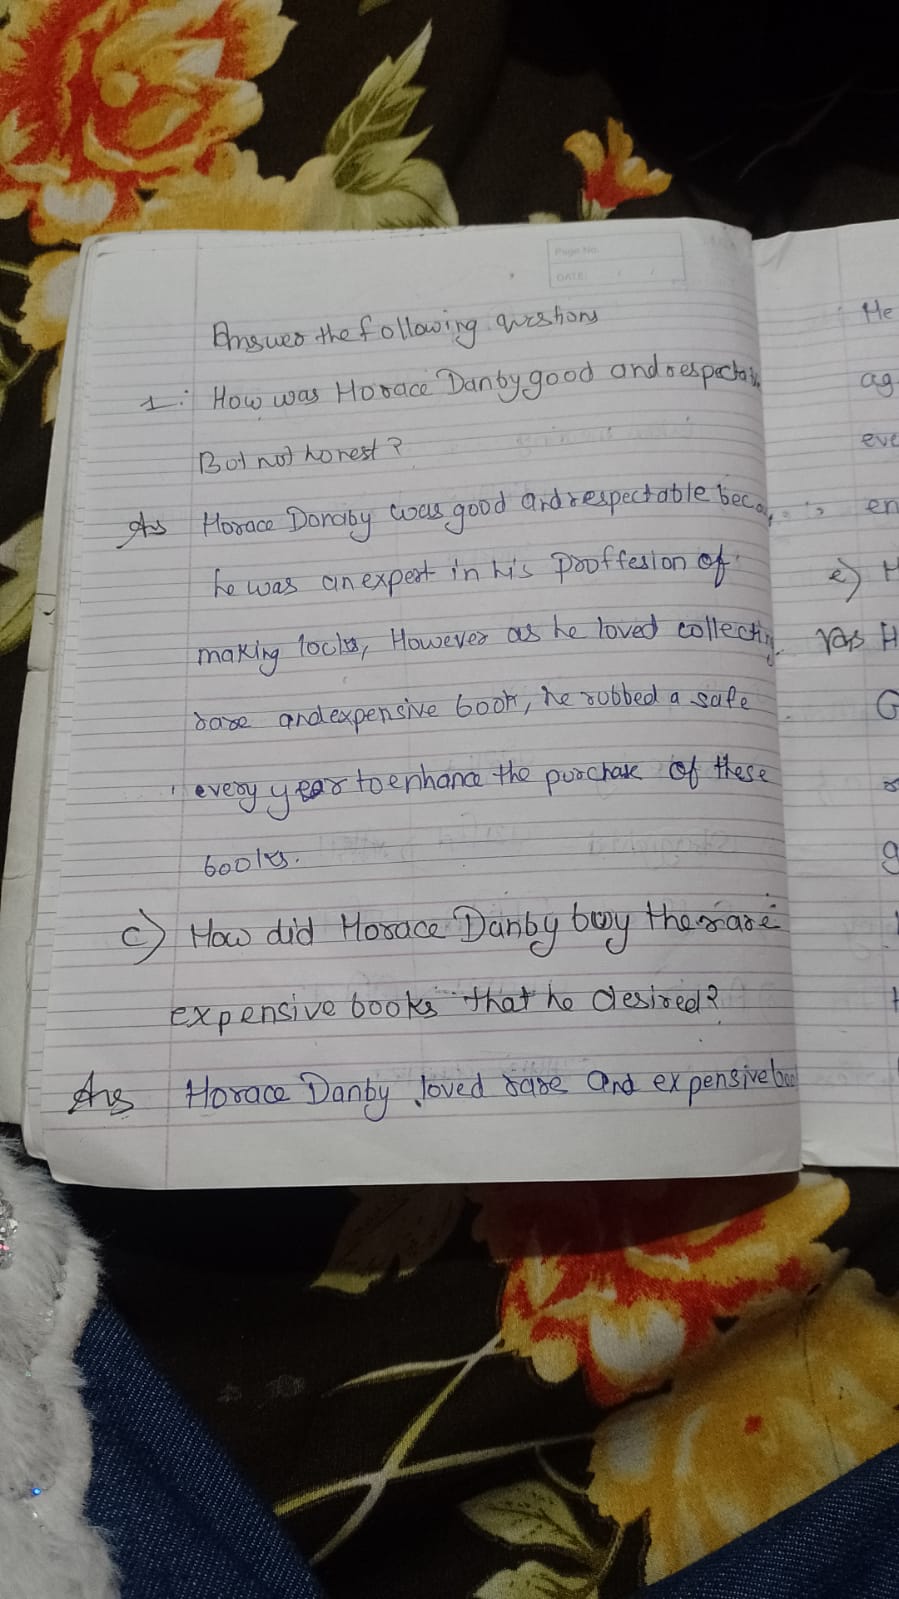 Page No.
DATE: / /
Answer the following qustions
1: How was Horace Danby good and respectab
But not honest?
Ans Horace Danby was good and respectable beca
he was an expert in his proffesion of
making locks, However as he loved collectin
rare and expensive book, he robbed a safe
every year to enhance the purchase of these
books.
c) How did Horace Danby buy the rare
expensive books that he desired?
Ans Horace Danby loved rare and expensive boo
He
ag
eve
en
e) H
Ans H
G
g